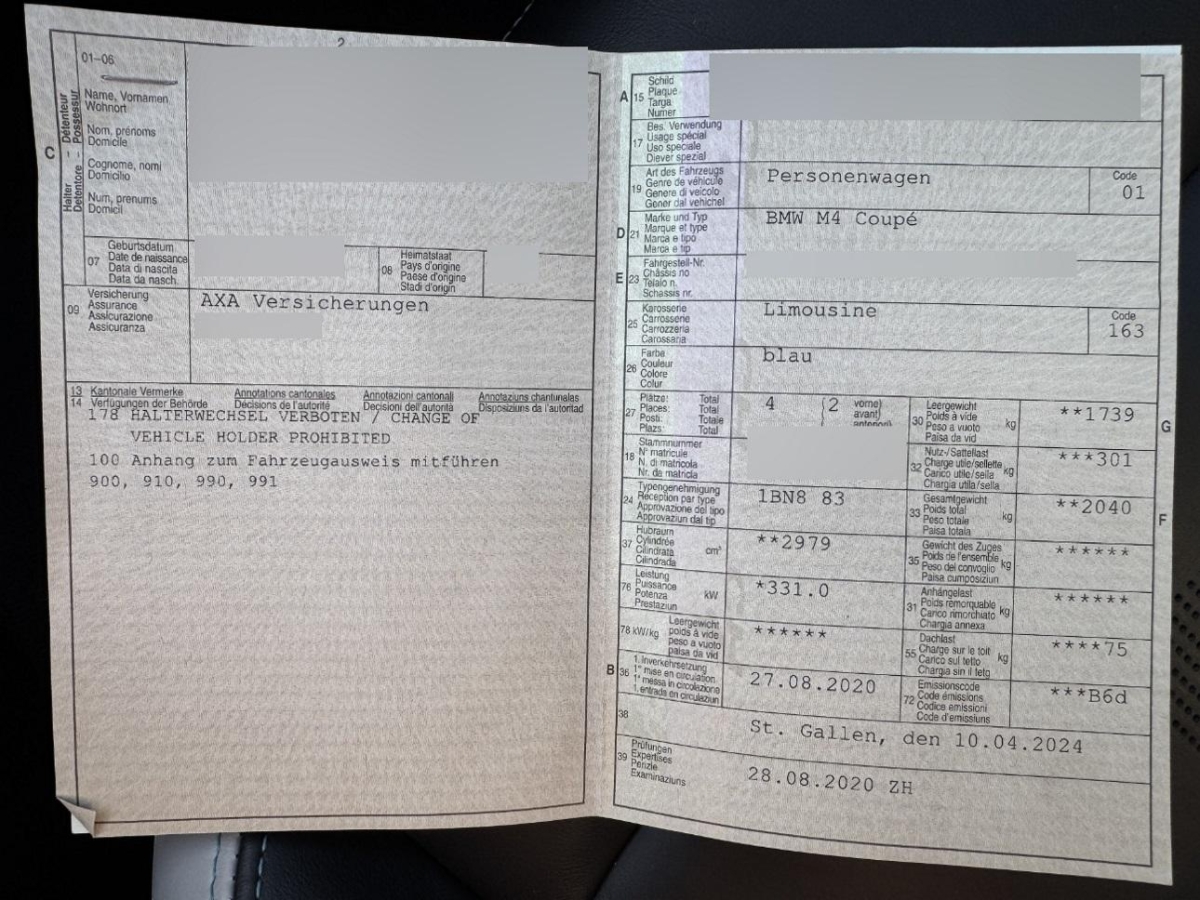 01–06
Halter – Détenteur
Detentore – Possessur
C
Name, Vornamen
Wohnort
Nom, prénoms
Domicile
Cognome, nomi
Domicilio
Num, prenums
Domicil
07
Geburtsdatum
Date de naissance
Data di nascita
Data da nasch.
08
Heimatstaat
Pays d'origine
Paese d'origine
Stadi d'origin
09
Versicherung
Assurance
Assicurazione
Assicuranza
AXA Versicherungen
13 Kantonale Vermerke Annotations cantonales Annotazioni cantonali Annotaziuns chantunalas
14 Verfügungen der Behörde Décisions de l'autorité Decisioni dell'autorità Disposiziuns da l'autoritad
178 HALTERWECHSEL VERBOTEN / CHANGE OF
VEHICLE HOLDER PROHIBITED
100 Anhang zum Fahrzeugausweis mitführen
900, 910, 990, 991
A 15
Schild
Plaque
Targa
Numer
17
Bes. Verwendung
Usage spécial
Uso speciale
Diever spezial
19
Art des Fahrzeugs
Genre de véhicule
Genere di veicolo
Gener dal vehichel
Personenwagen
Code
01
D 21
Marke und Typ
Marque et type
Marca e tipo
Marca e tip
BMW M4 Coupé
E 23
Fahrgestell-Nr.
Châssis no
Telaio n.
Schassis nr.
25
Karosserie
Carrosserie
Carrozzeria
Carossaria
Limousine
Code
163
26
Farbe
Couleur
Colore
Colur
blau
27
Plätze: Total
Places: Total
Posti: Totale
Plazs: Total
4
(2
vorne)
avant)
anteriori)
30
Leergewicht
Poids à vide
Peso a vuoto
Paisa da vid
kg
**1739
G
18
Stammnummer
N° matricule
N. di matricola
Nr. da matricla
32
Nutz-/Sattellast
Charge utile/sellette
Carico utile/sella
Chargia utila/sella
kg
***301
24
Typengenehmigung
Réception par type
Approvazione del tipo
Approvaziun dal tip
1BN8 83
33
Gesamtgewicht
Poids total
Peso totale
Paisa totala
kg
**2040
F
37
Hubraum
Cylindrée
Cilindrata
Cilindrada
cm³
**2979
35
Gewicht des Zuges
Poids de l'ensemble
Peso del convoglio
Paisa cumposiziun
kg
******
76
Leistung
Puissance
Potenza
Prestaziun
kW
*331.0
31
Anhängelast
Poids remorquable
Carico rimorchiato
Chargia annexa
kg
******
78 kW/kg
Leergewicht
poids à vide
peso a vuoto
paisa da vid
******
55
Dachlast
Charge sur le toit
Carico sul tetto
Chargia sin il tetg
kg
****75
B 36
1. Inverkehrsetzung
1re mise en circulation
1a messa in circolazione
1. entrada en circulaziun
27.08.2020
72
Emissionscode
Code émissions
Codice emissioni
Code d'emissiuns
***B6d
38
St. Gallen, den 10.04.2024
39
Prüfungen
Expertises
Perizie
Examinaziuns
28.08.2020 ZH